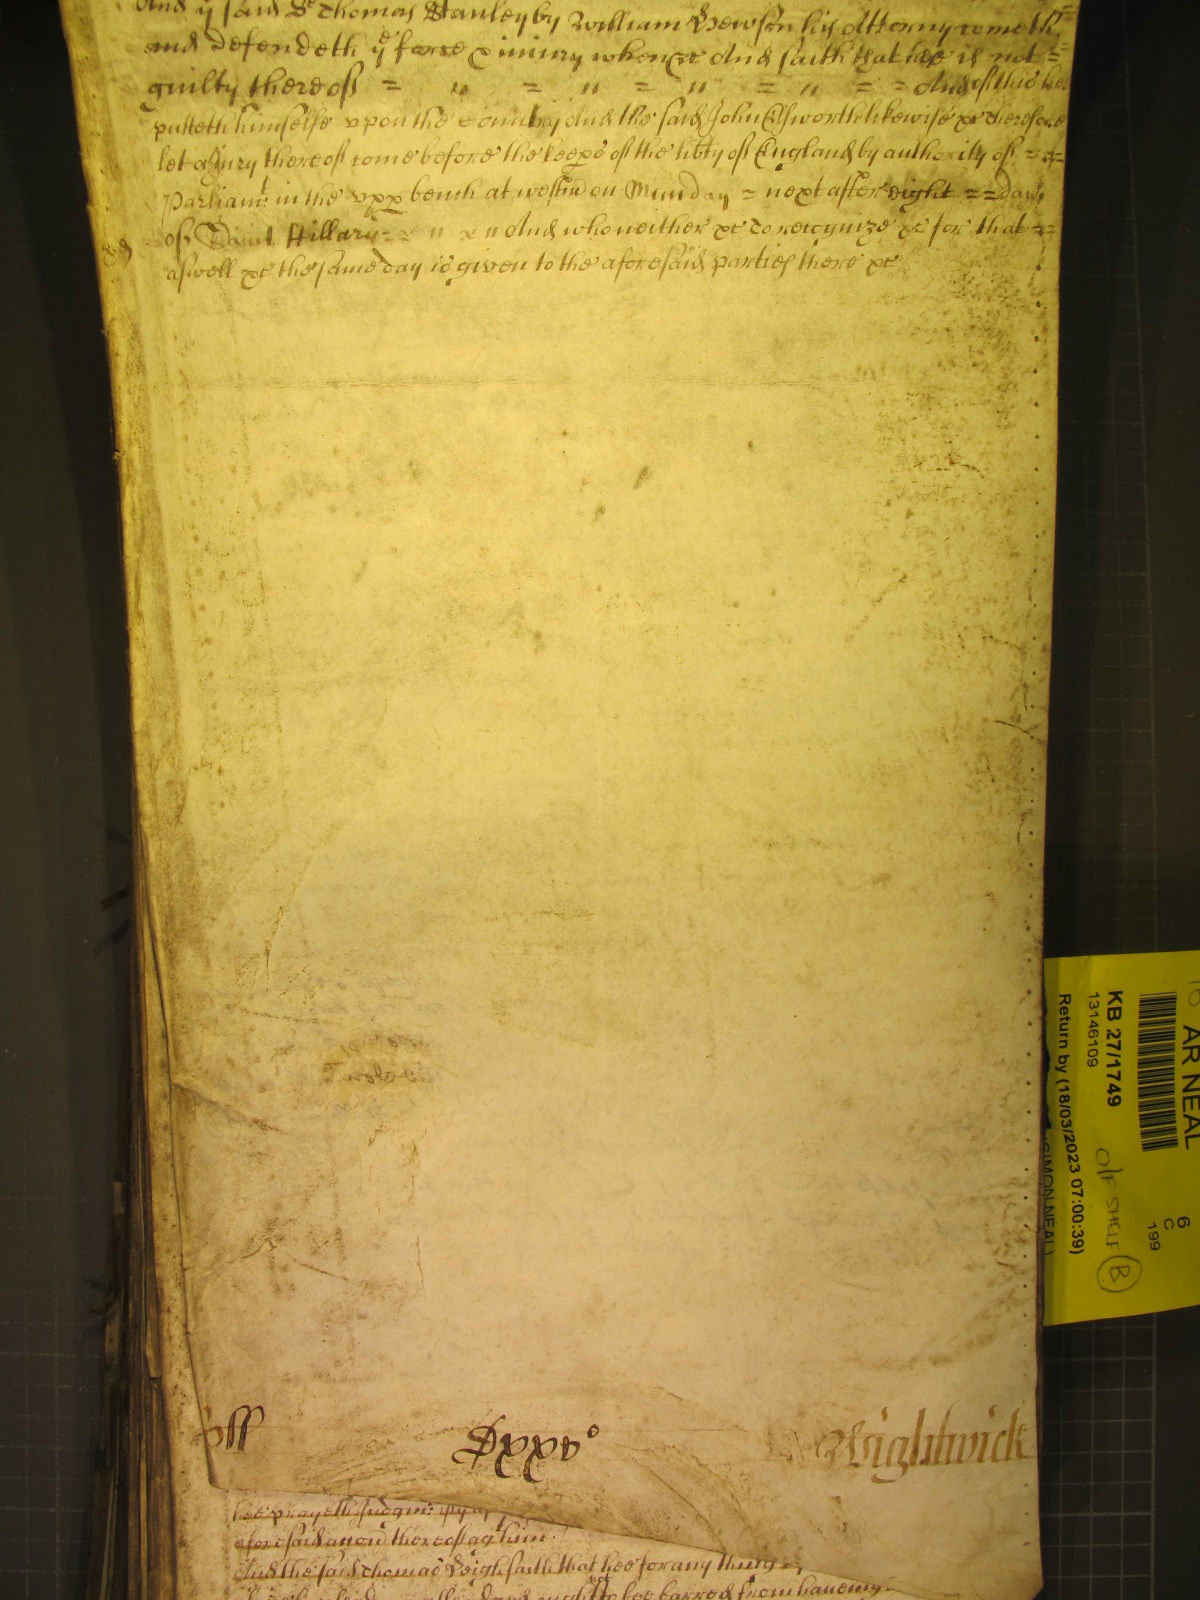 And ye said Sr Thomas Stanley by William Hewson his Attorny cometh
and defendeth ye force & iniury when &c And saith that hee is not =
guilty thereof = " = " = " = " = = And of this hee
putteth himselfe vpon the Country And the said John Ashworth likewise &c Therefore
let a Jury thereof come before the keeps of the libty of England by authority of =
Parliamt in the vpp bench at westm on Munday = next after eight == days
of Saint Hillary = = " x " And who neither &c To recognize &c for that ==
aswell &c the same day is given to the aforesaid parties there &c
KB 27/1749
13146109
Return by (18/03/2023 07:00:39)
(SIMON NEAL)
AR NEAL
O/F SHELF B
6
C
199
Dxxvo
Wightwick
hee prayeth Judgmt:
aforesaid accon thereof agt him
And the said Thomas Leigh saith that hee for any thing
not to bee barred from haveing